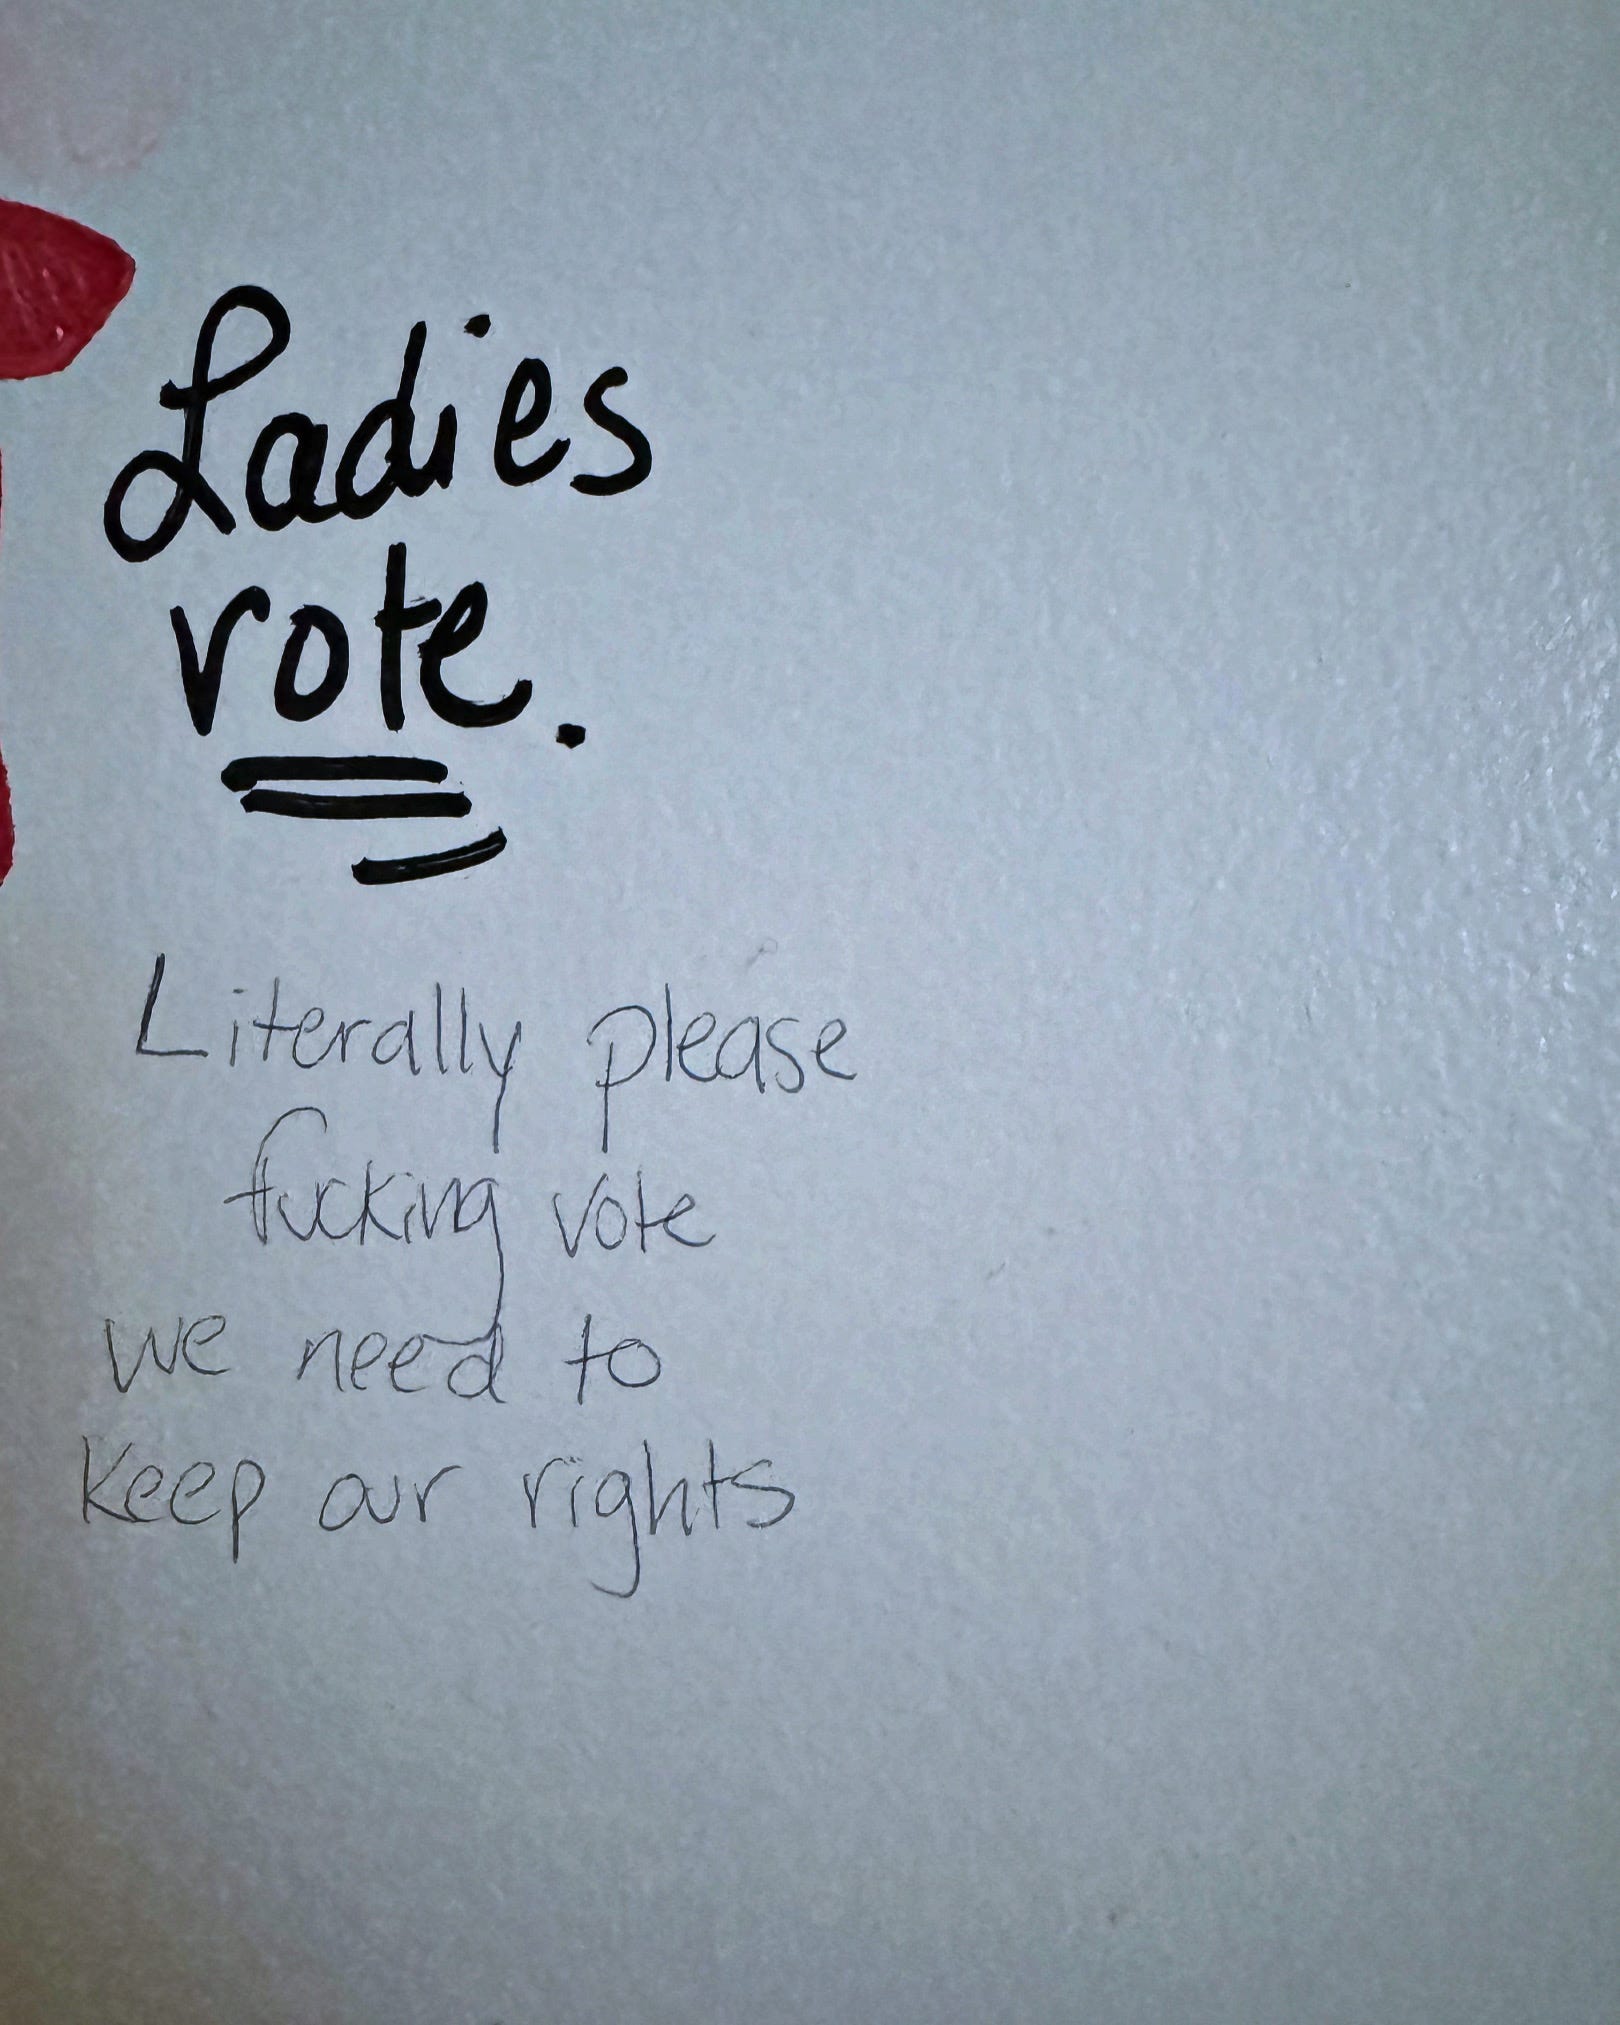 Ladies
vote.
Literally please
fucking vote
we need to
keep our rights